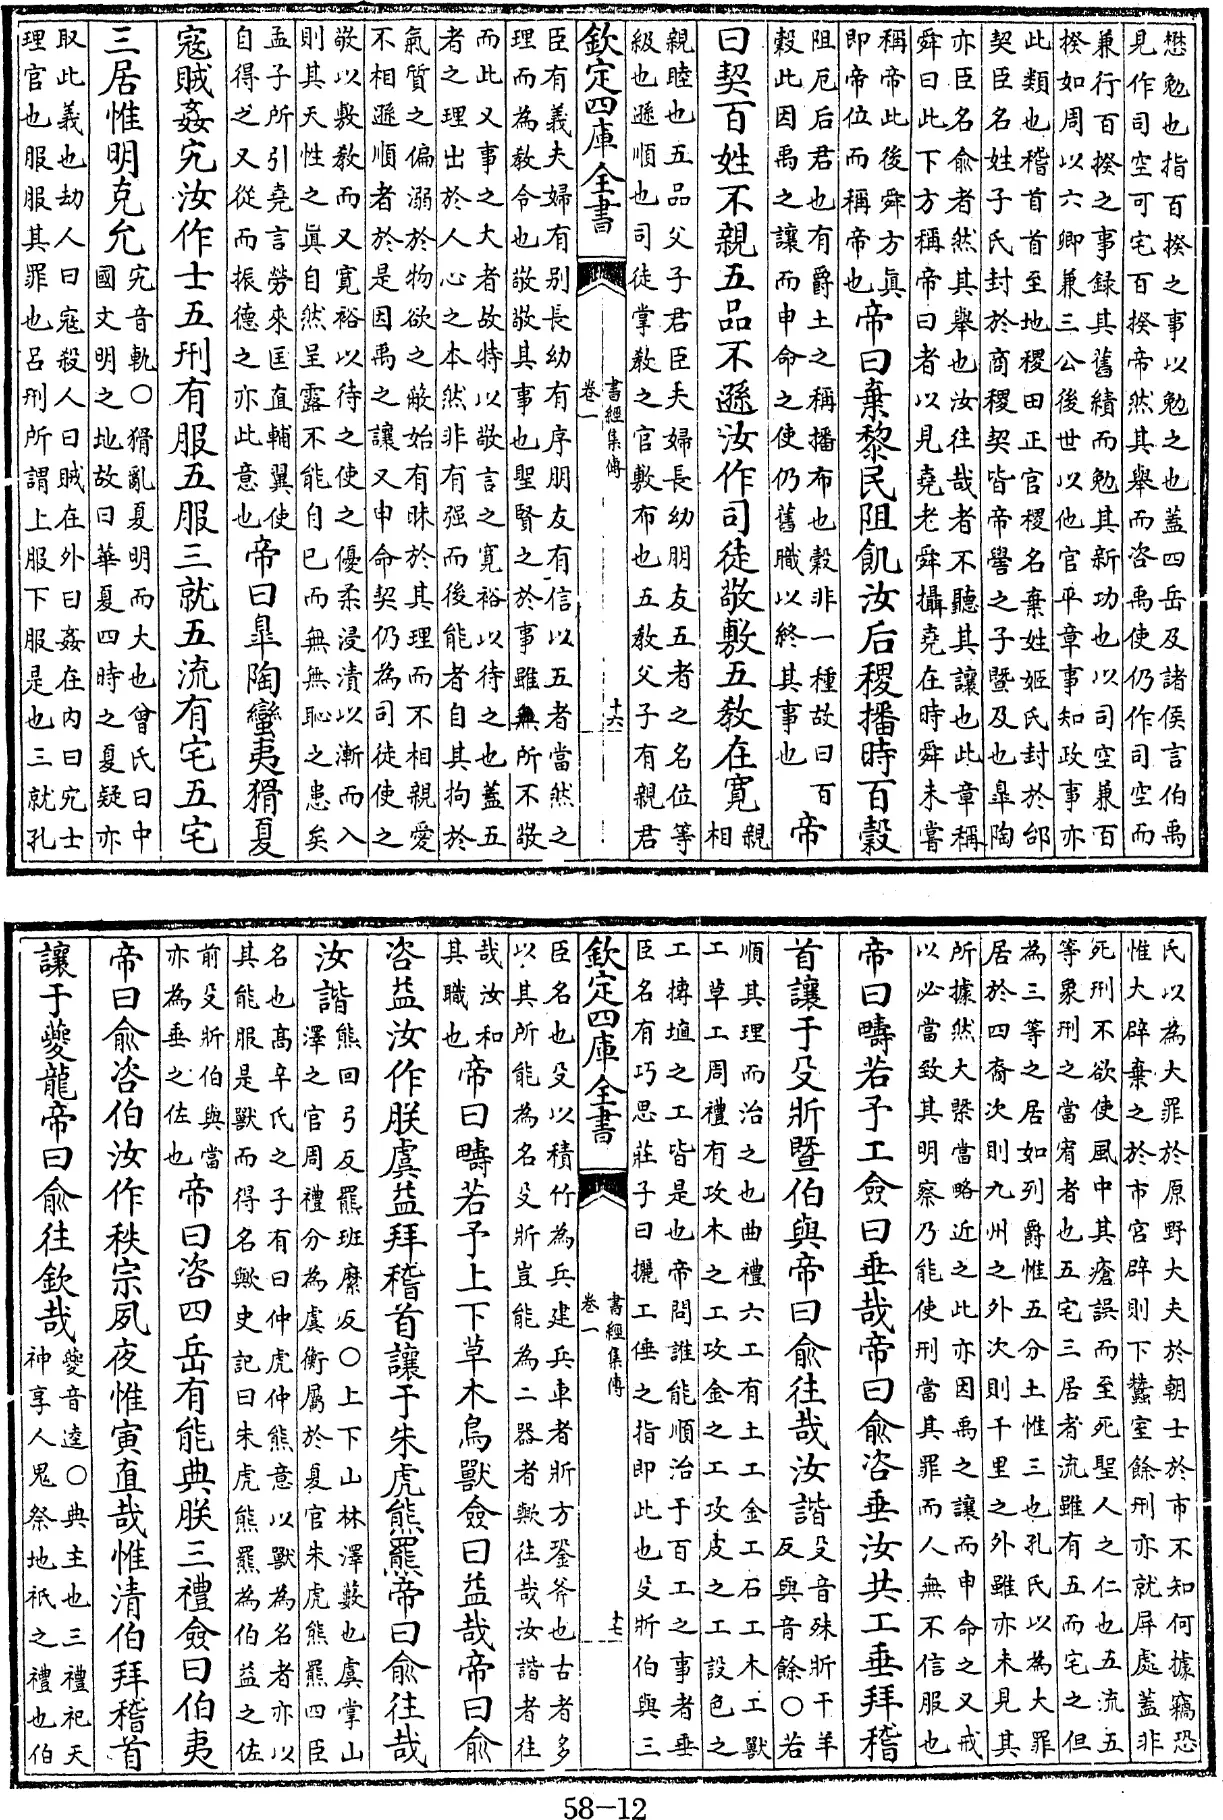 懋勉也指百揆之事以勉之也蓋四岳及諸侯言伯禹
見作司空可宅百揆帝然其舉而咨禹使仍作司空而
兼行百揆之事録其舊績而勉其新功也以司空兼百
揆如周以六卿兼三公後世以他官平章事知政事亦
此類也稽首首至地稷田正官稷名棄姓姬氏封於邰
契臣名姓子氏封於商稷契皆帝嚳之子暨及也臯陶
亦臣名俞者然其舉也汝往哉者不聽其讓也此章稱
舜曰此下方稱帝曰者以見堯老舜攝堯在時舜未嘗
稱帝此後舜方真
即帝位而稱帝也
帝曰棄黎民阻飢汝后稷播時百穀
阻厄后君也有爵土之稱播布也穀非一種故曰百
穀此因禹之讓而申命之使仍舊職以終其事也
帝
曰契百姓不親五品不遜汝作司徒敬敷五教在寛
親
相
親睦也五品父子君臣夫婦長幼朋友五者之名位等
級也遜順也司徒掌教之官敷布也五教父子有親君
欽定四庫全書
書經集傳
卷一
十六
臣有義夫婦有别長幼有序朋友有信以五者當然之
理而為教令也敬敬其事也聖賢之於事雖無所不敬
而此又事之大者故特以敬言之寛裕以待之也蓋五
者之理出於人心之本然非有强而後能者自其拘於
氣質之偏溺於物欲之蔽始有昧於其理而不相親愛
不相遜順者於是因禹之讓又申命契仍為司徒使之
敬以敷教而又寛裕以待之使之優柔浸漬以漸而入
則其天性之真自然呈露不能自已而無無恥之患矣
孟子所引堯言勞來匡直輔翼使
自得之又從而振德之亦此意也
帝曰臯陶蠻夷猾夏
寇賊姦宄汝作士五刑有服五服三就五流有宅五宅
三居惟明克允
宄音軌○猾亂夏明而大也曾氏曰中
國文明之地故曰華夏四時之夏疑亦
取此義也劫人曰寇殺人曰賊在外曰姦在内曰宄士
理官也服服其罪也呂刑所謂上服下服是也三就孔
氏以為大罪於原野大夫於朝士於市不知何據竊恐
惟大辟棄之於市宫辟則下蠶室餘刑亦就屏處蓋非
死刑不欲使風中其瘡誤而至死聖人之仁也五流五
等象刑之當宥者也五宅三居者流雖有五而宅之但
為三等之居如列爵惟五分土惟三也孔氏以為大罪
居於四裔次則九州之外次則千里之外雖亦未見其
所據然大槩當略近之此亦因禹之讓而申命之又戒
以必當致其明察乃能使刑當其罪而人無不信服也
帝曰疇若予工僉曰垂哉帝曰俞咨垂汝共工垂拜稽
首讓于殳斨暨伯與帝曰俞往哉汝諧
殳音殊斨干羊
反與音餘○若
順其理而治之也曲禮六工有土工金工石工木工獸
工草工周禮有攻木之工攻金之工攻皮之工設色之
工摶埴之工皆是也帝問誰能順治予百工之事者垂
臣名有巧思莊子曰攦工倕之指即此也殳斨伯與三
欽定四庫全書
書經集傳
卷一
十七
臣名也殳以積竹為兵建兵車者斨方銎斧也古者多
以其所能為名殳斨豈能為二器者歟往哉汝諧者往
哉汝和
其職也
帝曰疇若予上下草木鳥獸僉曰益哉帝曰俞
咨益汝作朕虞益拜稽首讓于朱虎熊羆帝曰俞往哉
汝諧
熊回弓反羆班糜反○上下山林澤藪也虞掌山
澤之官周禮分為虞衡屬於夏官朱虎熊羆四臣
名也髙辛氏之子有曰仲虎仲熊意以獸為名者亦以
其能服是獸而得名歟史記曰朱虎熊羆為伯益之佐
前殳斨伯與當
亦為垂之佐也
帝曰咨四岳有能典朕三禮僉曰伯夷
帝曰俞咨伯汝作秩宗夙夜惟寅直哉惟清伯拜稽首
讓于夔龍帝曰俞往欽哉
夔音逵○典主也三禮祀天
神享人鬼祭地祇之禮也伯
58-12